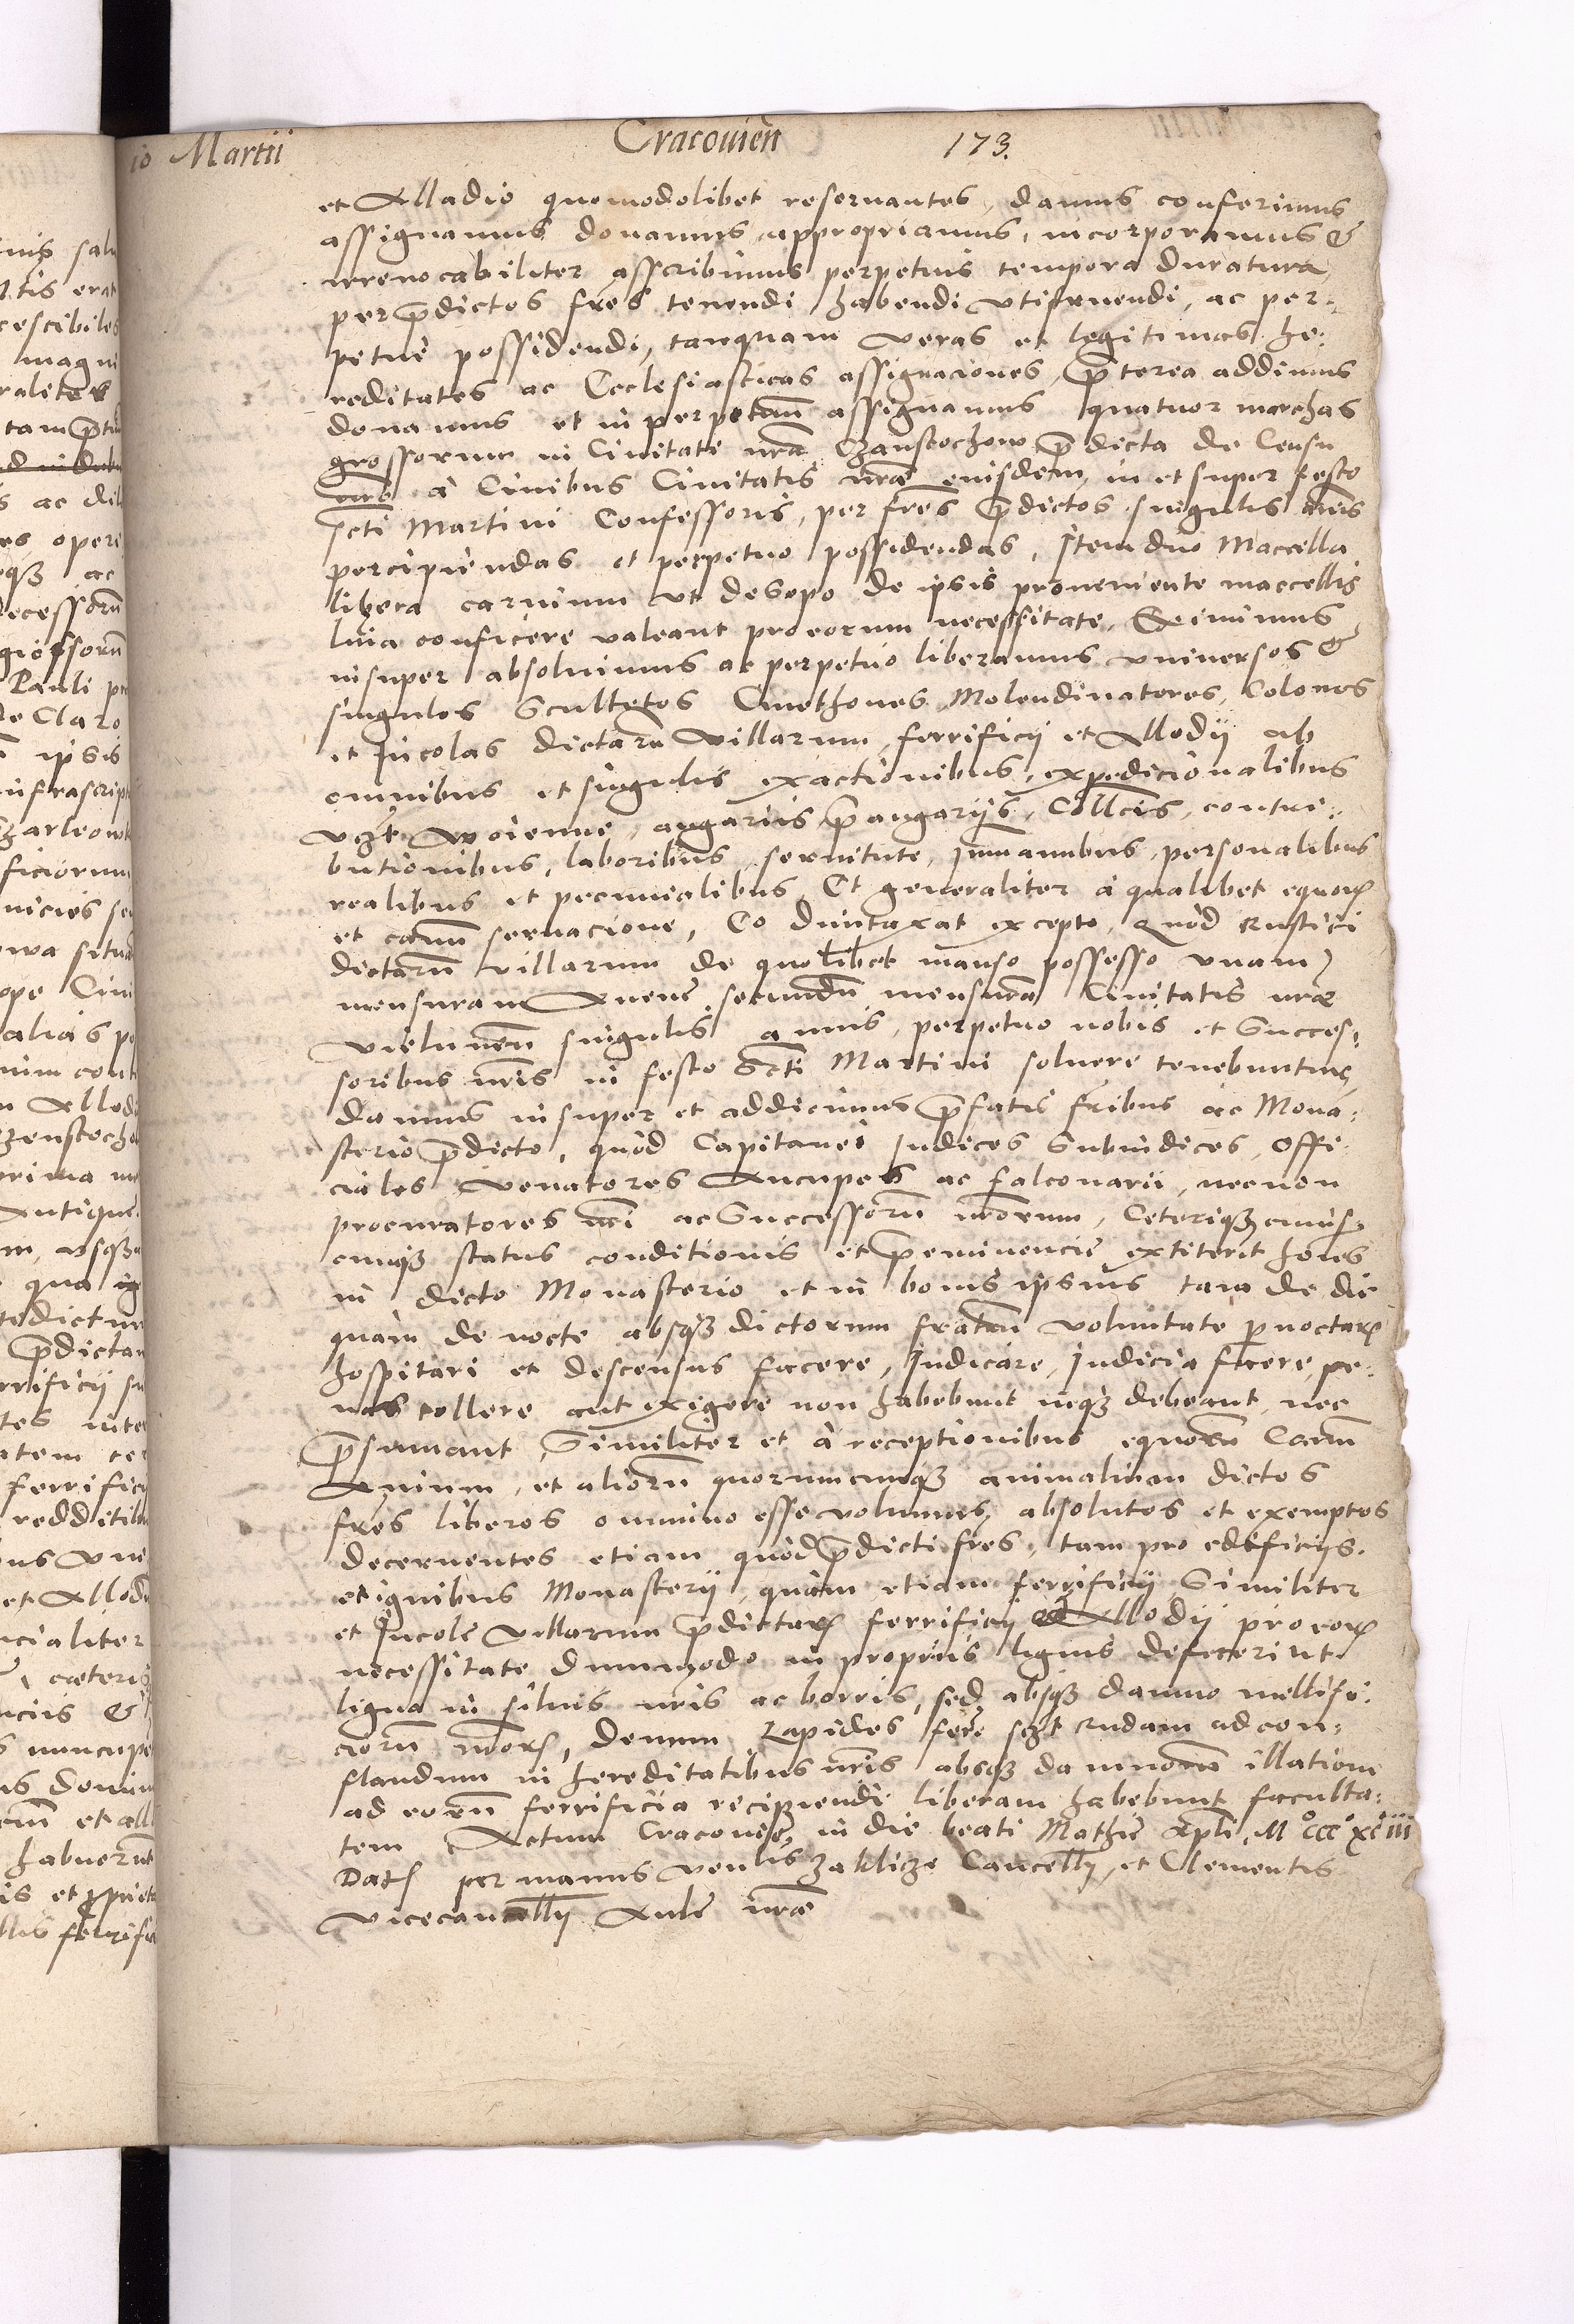 io Martii Cracouien 173.
et Alladio quomodolibet reseruantes, damus conferimus
assignamus donamus appropriamus, incorporamus &
irreuocabiliter asscribimus perpetuis tempora duratura
per p̄dictos frēs tenendi habendi vtifruendi, ac per-
petue possidendi, tanquam veras et legitimas he-
reditates ac Ecclesiasticas assignaciones, p̄terea addimus
donamus et in perpetuū assignamus quatuor marchas
grossorum in Ciuitati nrā Czanstochow p̄dicta de Censu
nr̄o a Ciuibus Ciuitatis nr̄æ eiusdem, in et super festo
Scti Martini Confessoris, per frēs p̄dictos singulis annis
percipiendas et perpetuo possidendas, Item duo Maccella
libera carnium vt de Sepo de ipsis proueniente maccellis
luia conficere valeant pro eorum necessitate. Eximimus
insuper absoluimus ac perpetuo liberamus vniuersos &
singulos Scultetos Cmethones Molendinatores, Colonos
et Incolas dictarū villarum, ferrificij et Allodij ab
omnibus et singulis exactionibus, expedicionalibus
vczt woienne, angariis p̄angarijs, Collcis, contri-
butionibus, laboribus seruitute, Immanibus, personalibus
realibus et pecunialibus Et generaliter a qualibet equorꝝ
et canū seruacione, Eo duntaxat excepto, Quod Rustici
dictarū villarum de quolibet manso possesso vnam
mensuram Auene secundū mensurā Ciuitatis nræ
vielunen̄ singulis annis, perpetuo nobis et Succes-
soribus nr̄is in festo Scti Martini soluere tenebuntur
damus insuper et addicimus p̄fatis frībus ac Mona-
sterio p̄dicto, quod Capitanei Iudices Subiudices, Offi-
ciales venatores Aucupes ac falconarii, necnon
procuratores nr̄i ac Successorū nr̄orum, Ceteriqꝫ cuius-
cunqꝫ status conditionis et p̄eminencie extiterit hoīes
in dicto Monasterio et in bonis ipsius tam de die
quam de nocte absqꝫ dictorum fratrū voluntate p̄noctarꝭ
hospitari et descensus facere, Iudicare, Iudicia facere, pe-
nas tollere aut exigere non habebunt neqꝫ debeant, nec
p̄sumant, Similiter et a receptionibus equorū Canū
Auium, et aliorū quorumcunqꝫ animalium dictos
frēs liberos omnino esse volumus, absolutos et exemptos
decernentes etiam quod p̄dicti frēs, tam pro edificijs.
et ignibus Monasterij, quam etiam ferrificij Similiter
et Incole villarum p̄dictarꝝ ferrificij et Allodij pro eorꝝ
necessitate dummodo in proprijs lignis defecerint
ligna in siluis nr̄is ac borris, sed absqꝫ damno mellifi-
ciorū nr̄orꝝ, Demum Lapides ferrē sczt Rudam ad con-
flandum in hereditatibus nr̄is absqꝫ damnorū illatione
ad eorū ferrificia recipiendi liberam habebunt faculta-
tem Actum Cracouie, in die beati Mathie Apli, M° ccc° xciiii
Datꝭ per manus venlis Zaklicze Cancellij, et Clementis
vicecancellij Aule nræ